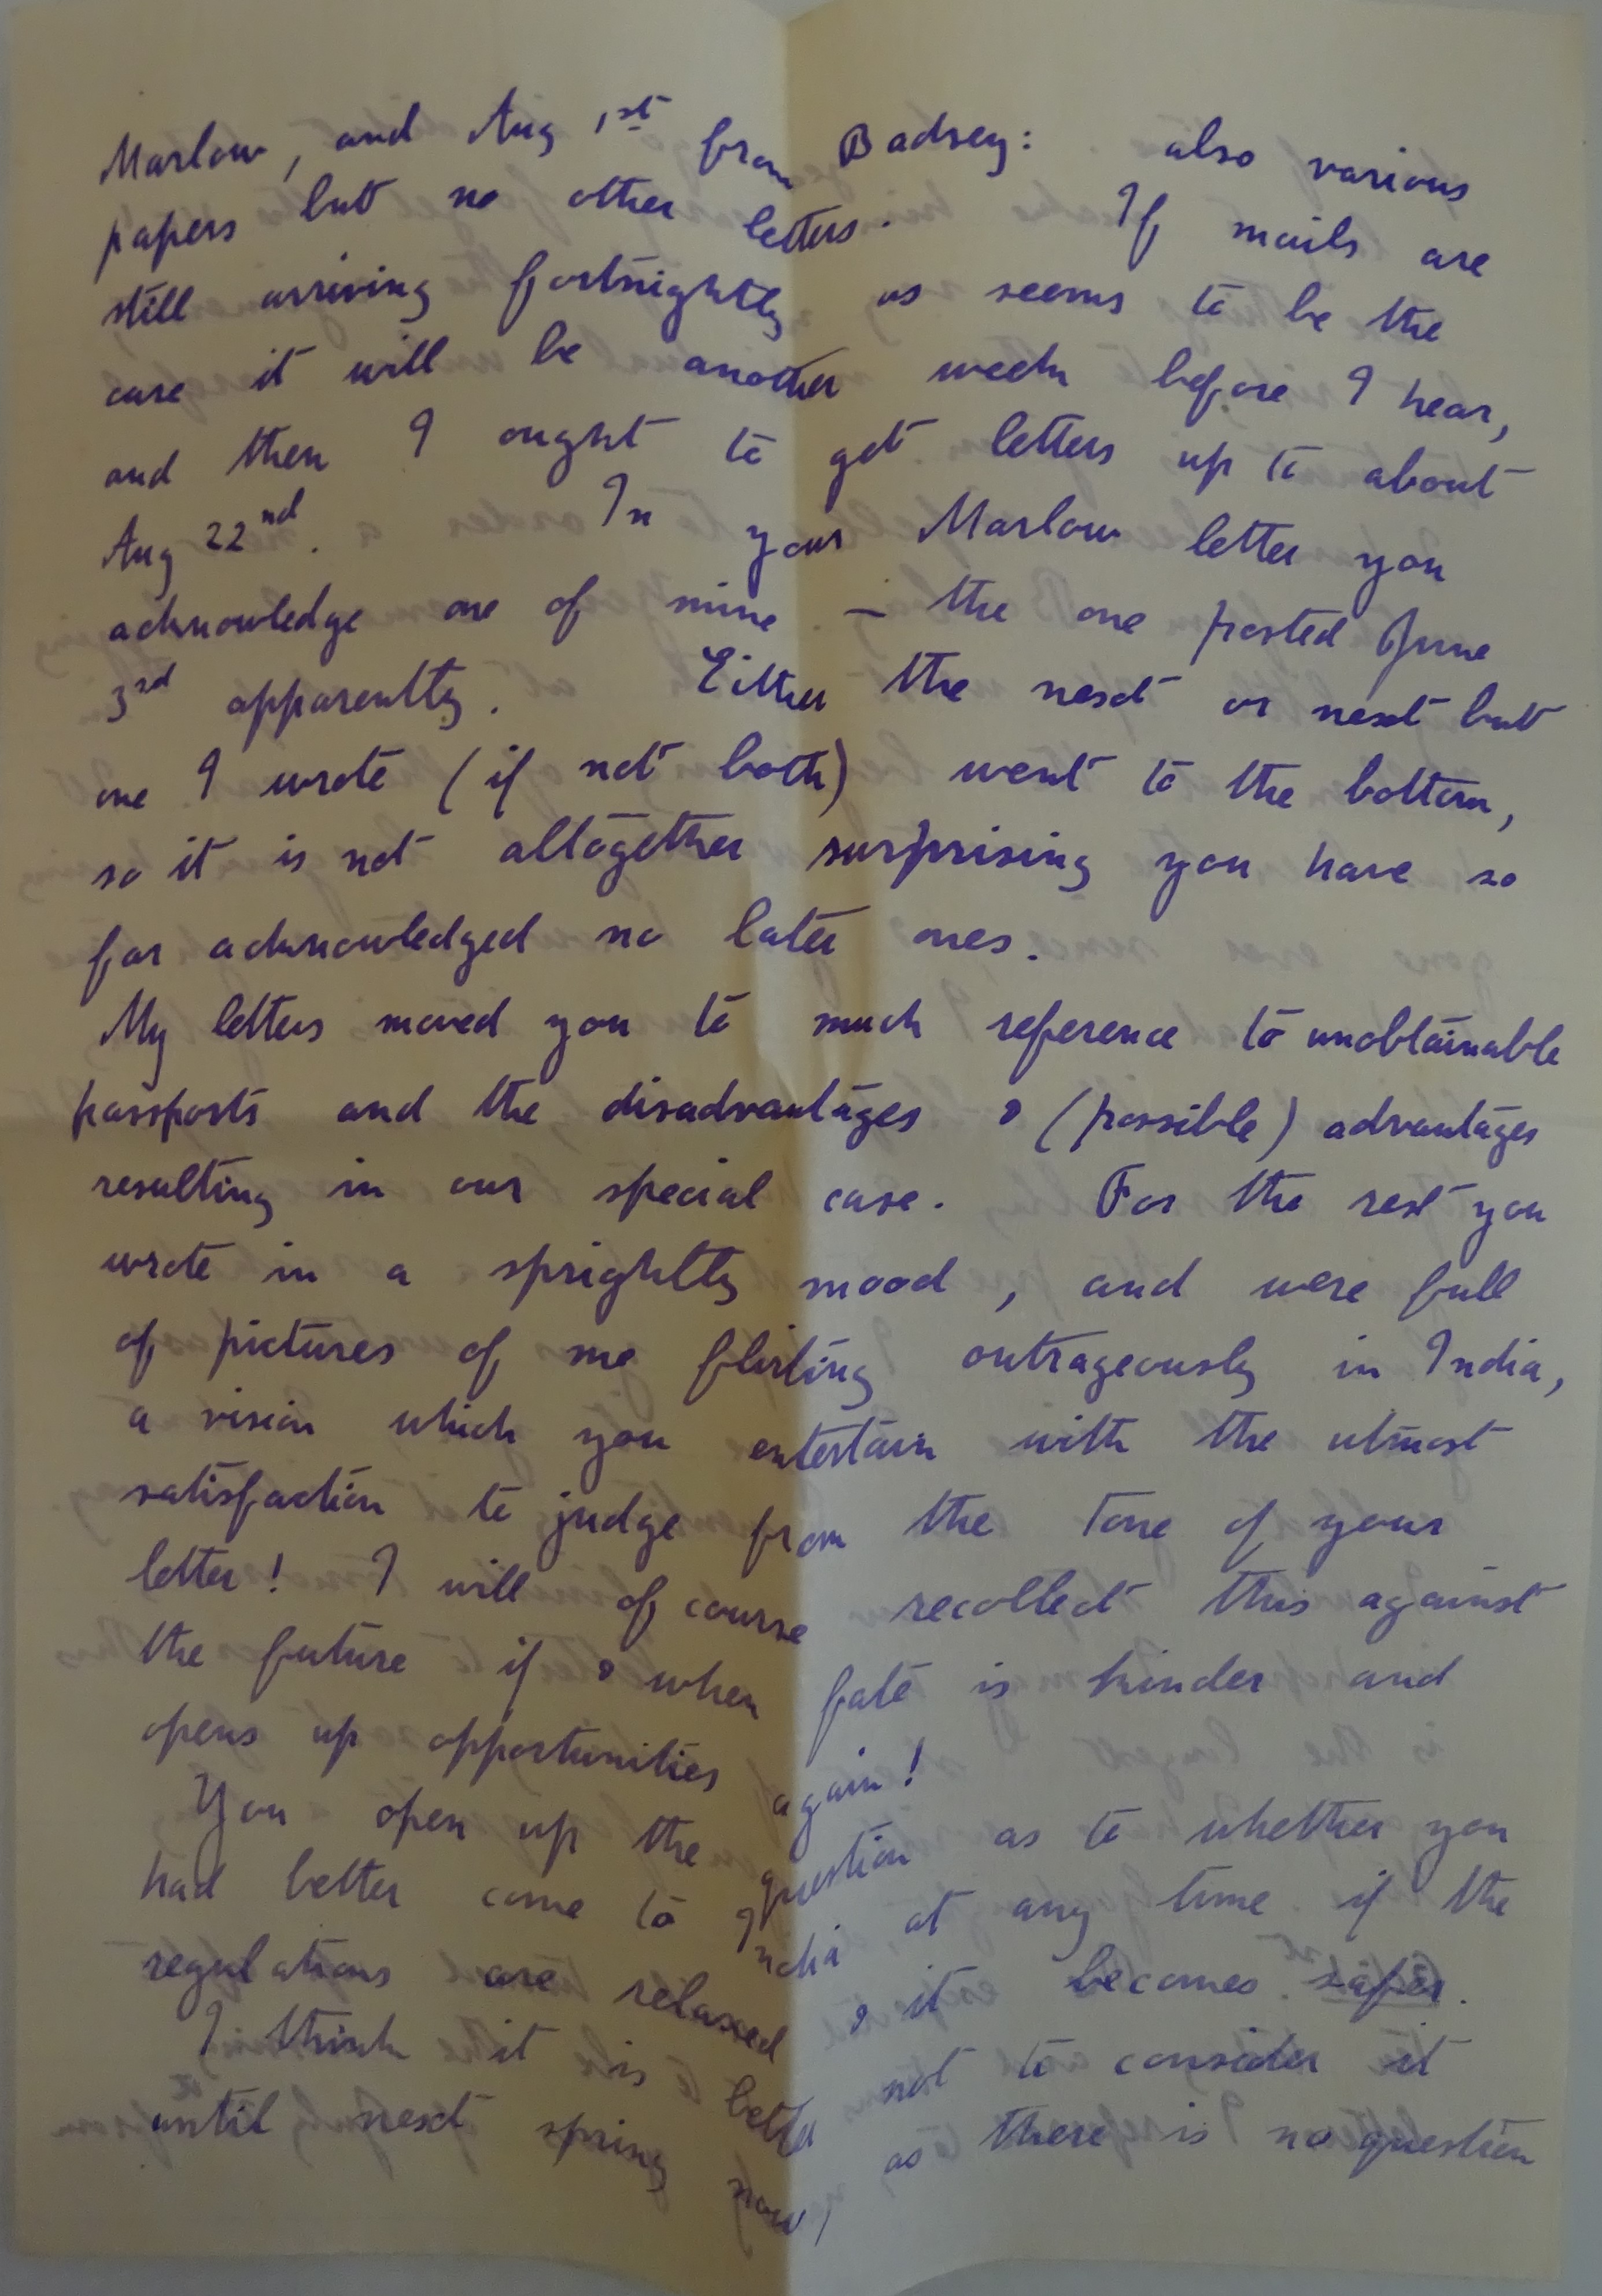 Marlow, and Aug 1st from Badsey: also various
papers but no other letters. If mails are
still arriving fortnightly as seems to be the
case it will be another week before I hear,
and then I ought to get letters up to about
Aug 22nd. In your Marlow letter you
acknowledge one of mine – the one posted June
3rd apparently. Either the next or next but
one I wrote (if not both) went to the bottom,
so it is not altogether surprising you have so
far acknowledged no later ones.
My letters moved you to much reference to unobtainable
passports and the disadvantages & (possible) advantages
resulting in our special case. For the rest you
wrote in a sprightly mood, and were full
of pictures of me flirting outrageously in India,
a vision which you entertain with the utmost
satisfaction to judge from the tone of your
letter! I will of course recollect this against
the future if & when fate is kinder and
opens up opportunities again!
You open up the question as to whether you
had better come to India at any time if the
regulations are relaxed & it becomes safer.
I think it is better not to consider it
until next spring now, as there is no question